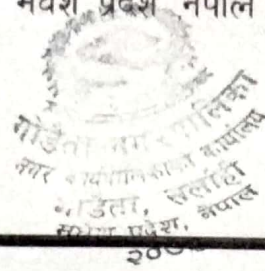 मधेश प्रदेश नेपाल
गोडैता नगरपालिका
नगर कार्यपालिकाको कार्यालय
गोडैता, सर्लाही
मधेश प्रदेश, नेपाल